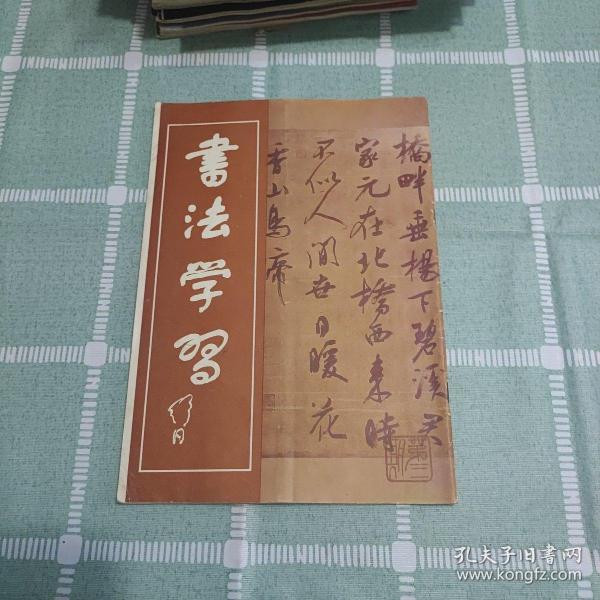 書法学習
橋畔垂楊下碧溪君
家元在北橋西來時
不似人間世日暖花
香山鳥啼
第三期
孔夫子旧书网
www.kongfz.com